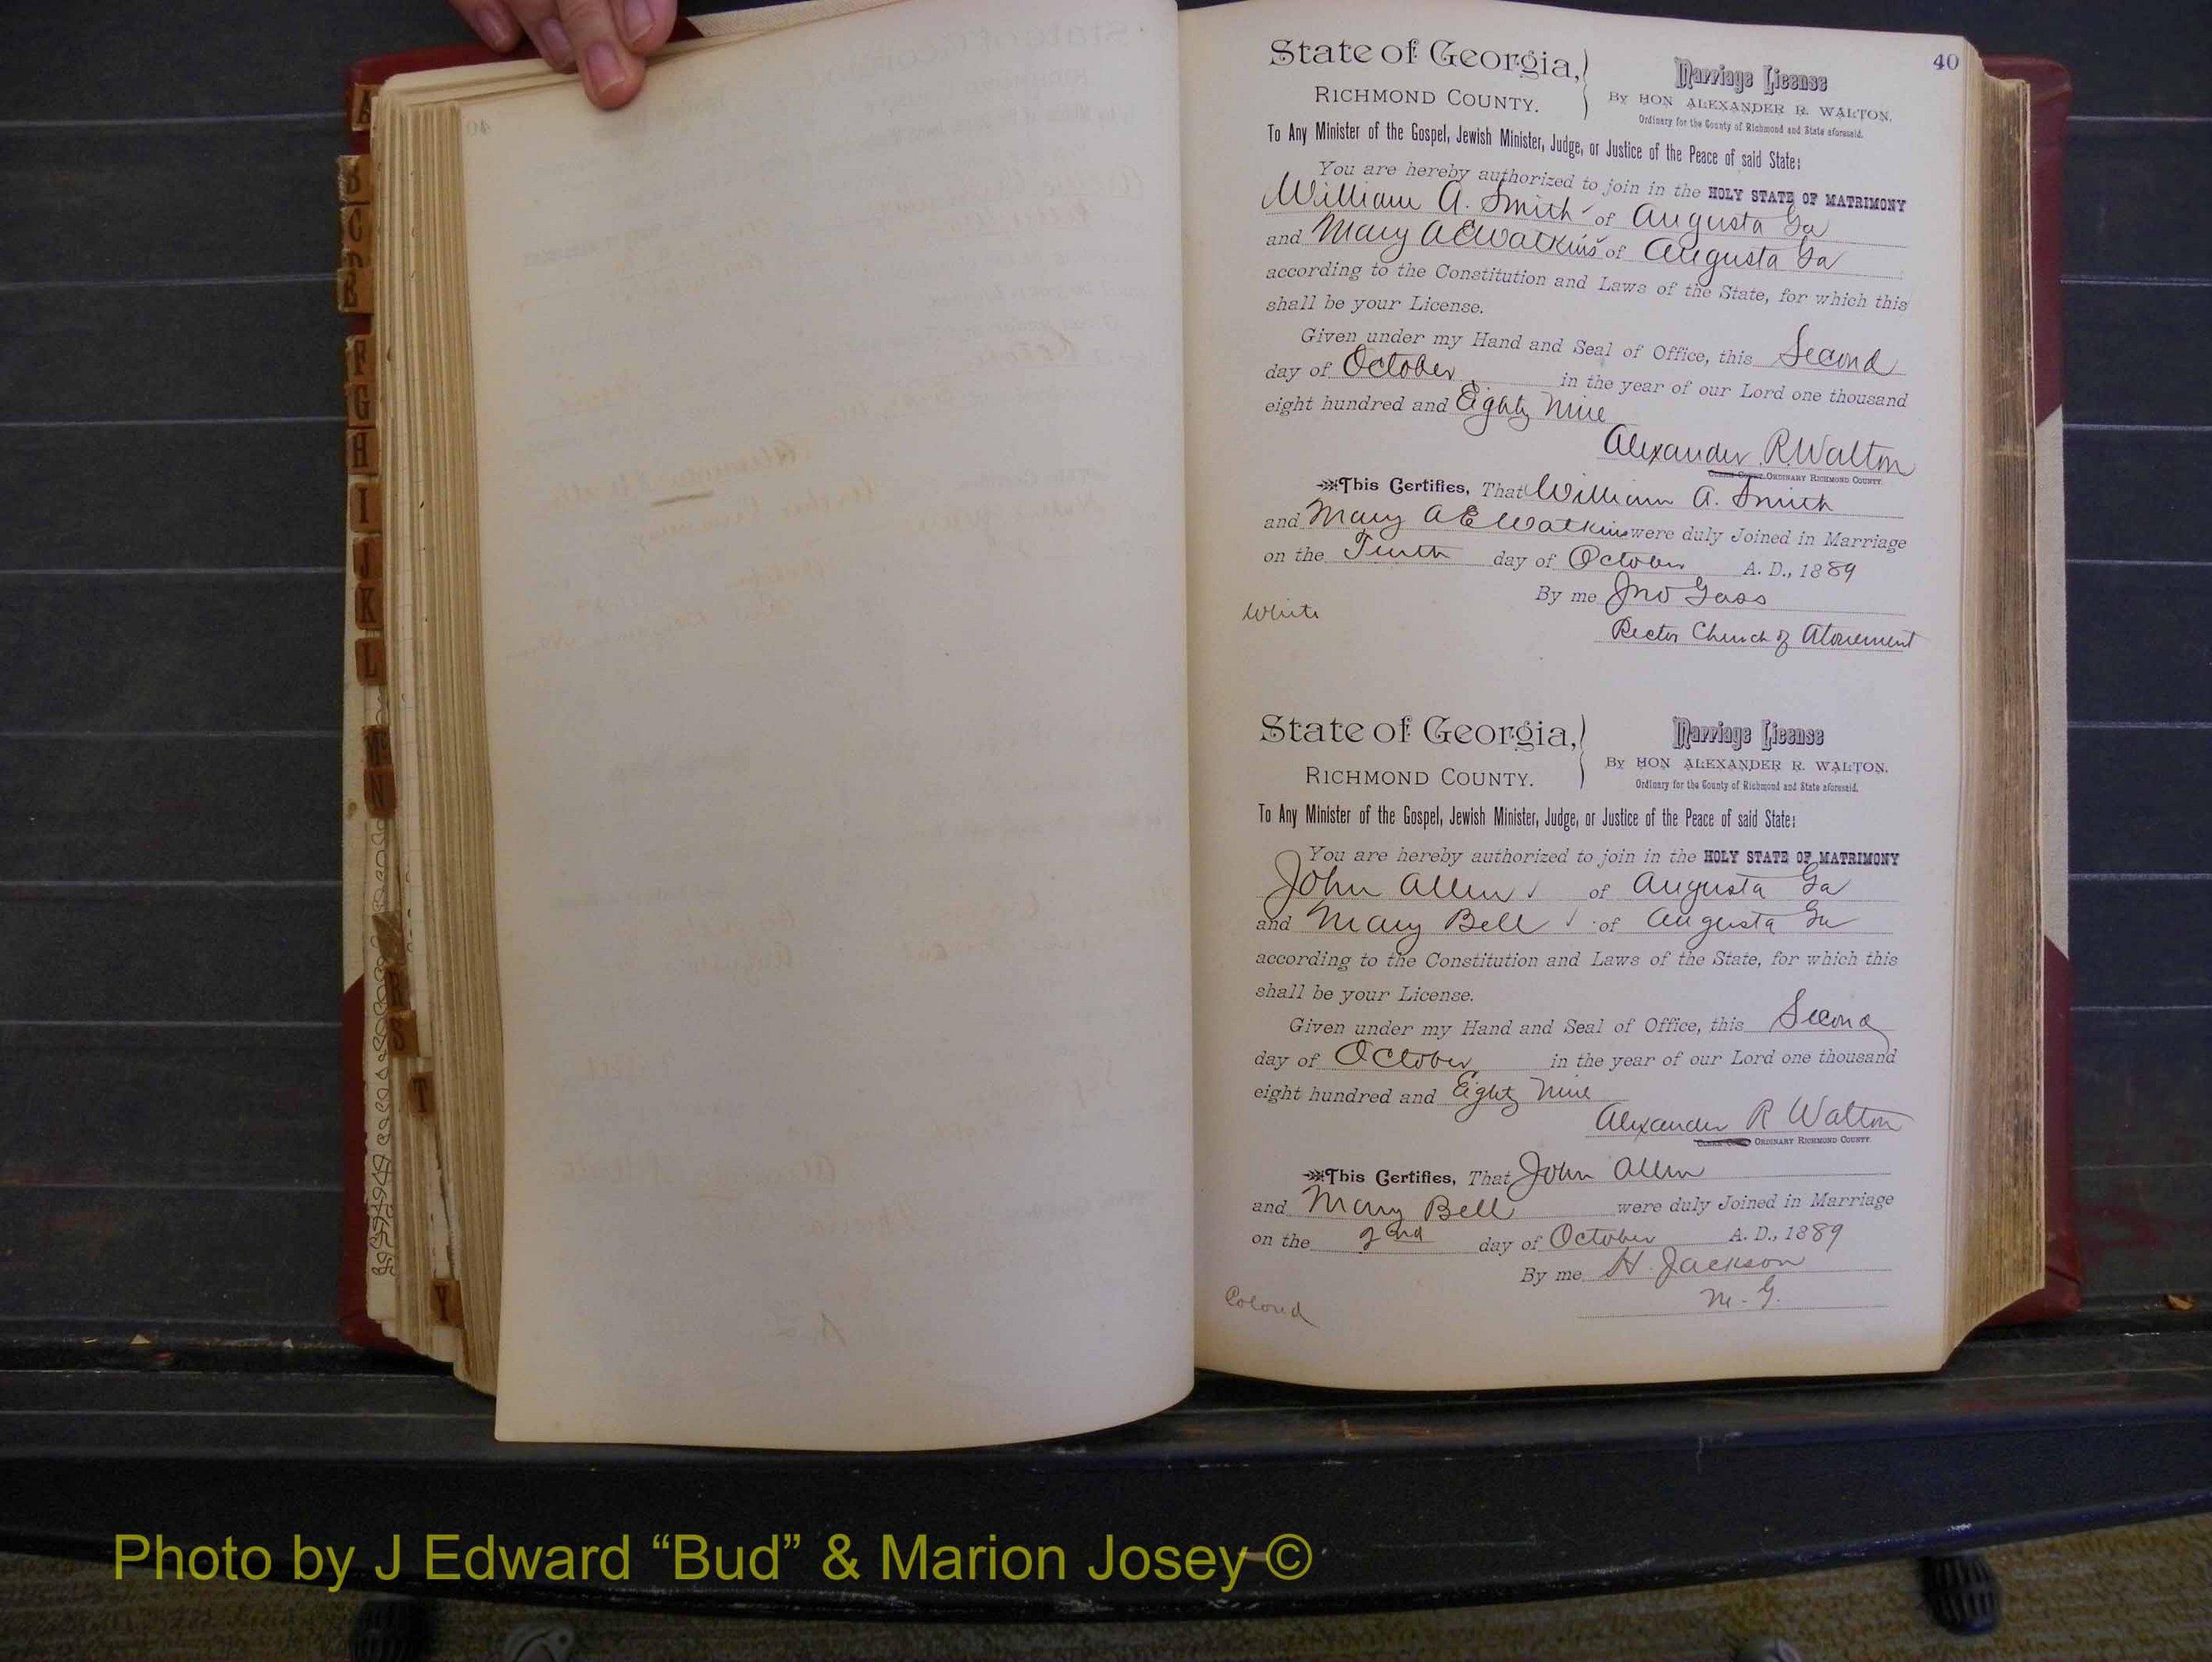 40
State of Georgia,
RICHMOND COUNTY.
Marriage License
By HON ALEXANDER R. WALTON,
Ordinary for the County of Richmond and State aforesaid.
To Any Minister of the Gospel, Jewish Minister, Judge, or Justice of the Peace of said State:
You are hereby authorized to join in the HOLY STATE OF MATRIMONY
William A. Smith of Augusta Ga
and Mary A E Watkins of Augusta Ga
according to the Constitution and Laws of the State, for which this
shall be your License.
Given under my Hand and Seal of Office, this Second
day of October in the year of our Lord one thousand
eight hundred and Eighty Nine
Alexander R. Walton
ORDINARY RICHMOND COUNTY.
This Certifies, That William A. Smith
and Mary A E Watkins were duly Joined in Marriage
on the Tenth day of October A. D., 1889
By me Jno Gass
White
Rector Church of Atonement
State of Georgia,
RICHMOND COUNTY.
Marriage License
By HON ALEXANDER R. WALTON,
Ordinary for the County of Richmond and State aforesaid.
To Any Minister of the Gospel, Jewish Minister, Judge, or Justice of the Peace of said State:
You are hereby authorized to join in the HOLY STATE OF MATRIMONY
John Allen of Augusta Ga
and Mary Bell of Augusta Ga
according to the Constitution and Laws of the State, for which this
shall be your License.
Given under my Hand and Seal of Office, this Second
day of October in the year of our Lord one thousand
eight hundred and Eighty Nine
Alexander R Walton
ORDINARY RICHMOND COUNTY.
This Certifies, That John Allen
and Mary Bell were duly Joined in Marriage
on the 2nd day of October A. D., 1889
By me H. Jackson
M. G.
Colored
A
B
C
D
E
F
G
H
I
J
K
L
M
N
R
S
T
Y
Photo by J Edward “Bud” & Marion Josey ©